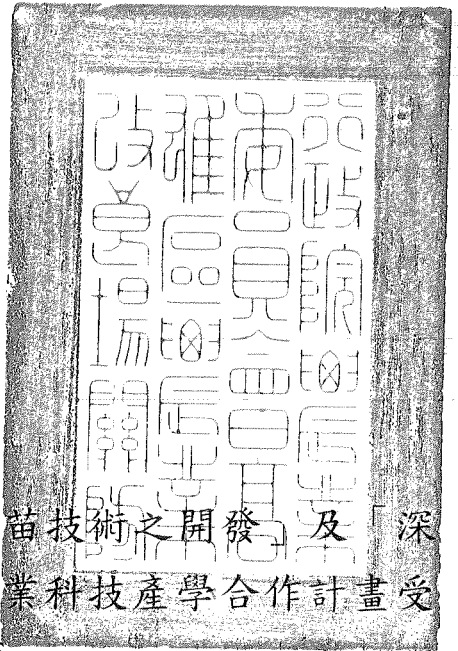 行政院農業
委員會高
雄區農業
改良場關防
苗技術之開發」及「深
業科技產學合作計畫受